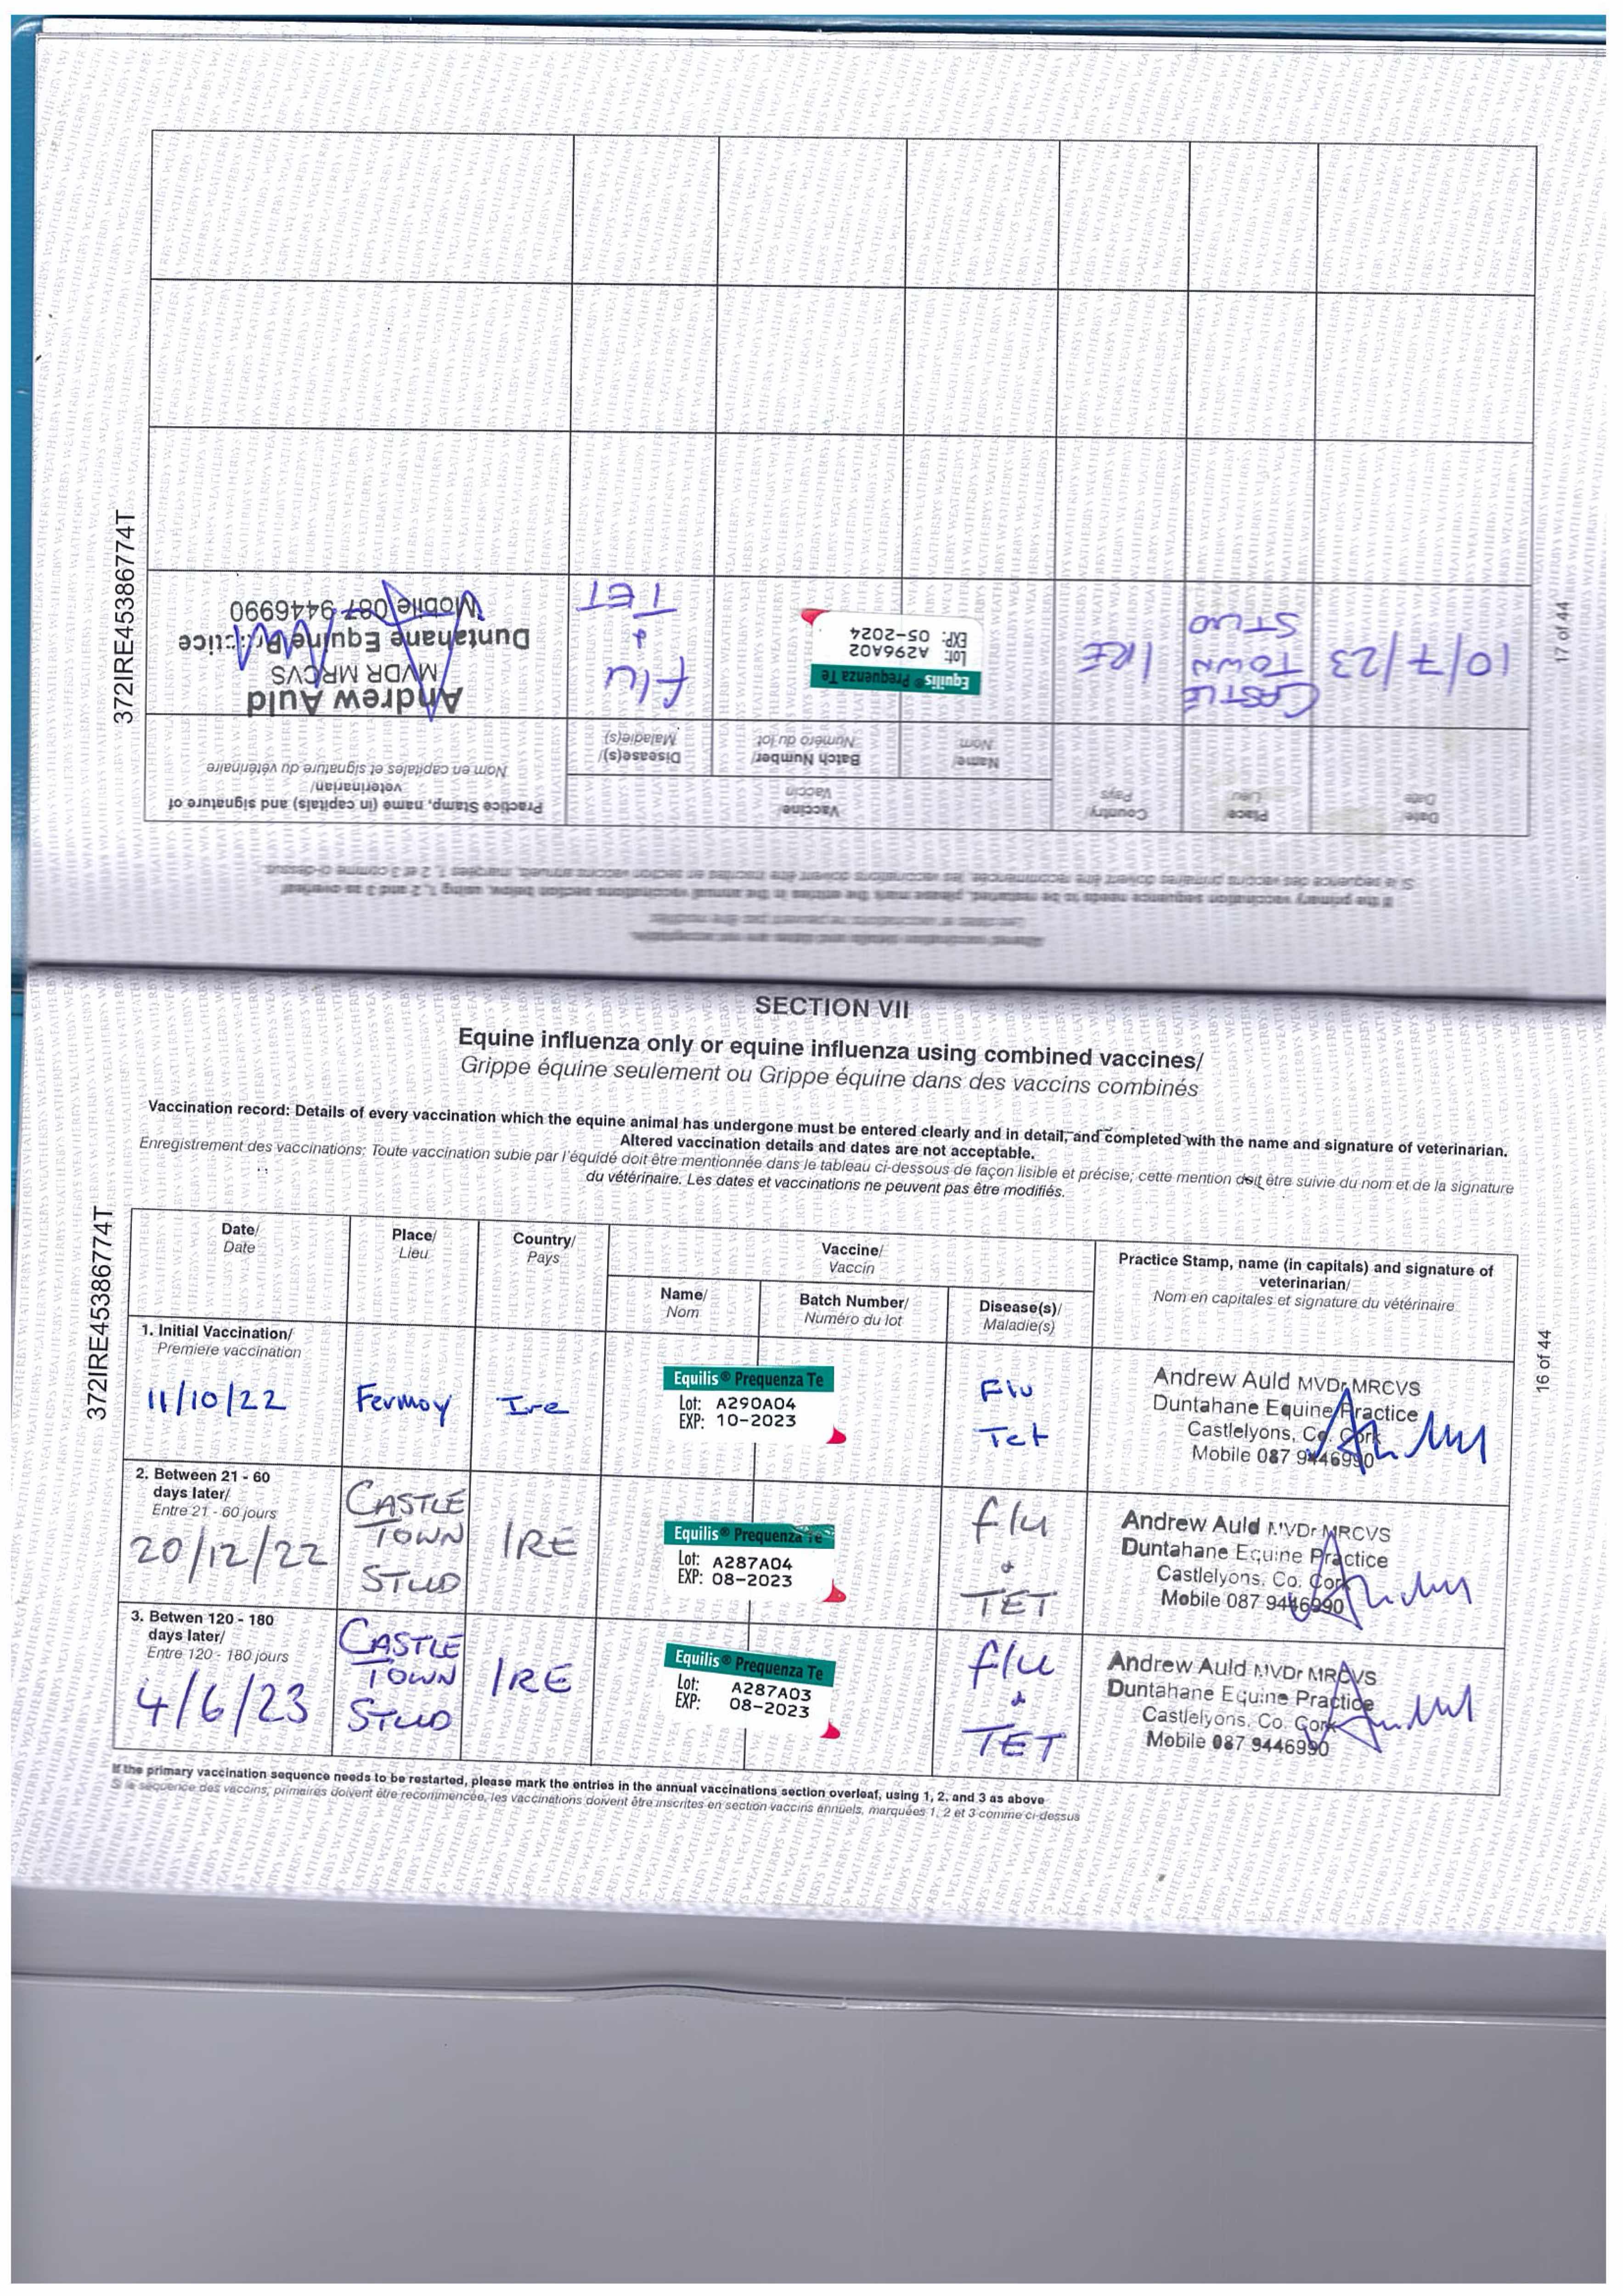 Altered vaccination details and dates are not acceptable.
Les dates et vaccinations ne peuvent pas être modifiés
If the primary vaccination sequence needs to be restarted, please mark the entries in the annual vaccinations section below, using 1, 2 and 3 as overleaf
Si la séquence des vaccins primaires doivent être recommencée, les vaccinations doivent être inscrites en section vaccins annuels, marquées 1, 2 et 3 comme ci-dessus.
Date/
Date
Place/
Lieu
Country/
Pays
Vaccine/
Vaccin
Name/
Nom
Batch Number/
Numéro du lot
Disease(s)/
Maladie(s)
Practice Stamp, name (in capitals) and signature of
veterinarian/
Nom en capitales et signature du vétérinaire
10/7/23
CASTLE
TOWN
STUD
IRE
Equilis® Prequenza Te
Lot: A296A02
EXP: 05-2024
flu
+
TET
Andrew Auld
MVDR MRCVS
Duntahane Equine Practice
Mobile 087 9446990
17 of 44
372IRE45386774T
SECTION VII
Equine influenza only or equine influenza using combined vaccines/
Grippe équine seulement ou Grippe équine dans des vaccins combinés
Vaccination record: Details of every vaccination which the equine animal has undergone must be entered clearly and in detail, and completed with the name and signature of veterinarian.
Altered vaccination details and dates are not acceptable.
Enregistrement des vaccinations; Toute vaccination subie par l'équidé doit être mentionnée dans le tableau ci-dessous de façon lisible et précise; cette mention doit être suivie du nom et de la signature
du vétérinaire. Les dates et vaccinations ne peuvent pas être modifiés.
372IRE45386774T
Date/
Date
Place/
Lieu
Country/
Pays
Vaccine/
Vaccin
Name/
Nom
Batch Number/
Numéro du lot
Disease(s)/
Maladie(s)
Practice Stamp, name (in capitals) and signature of
veterinarian/
Nom en capitales et signature du vétérinaire
1. Initial Vaccination/
Premiere vaccination
11/10/22
Fermoy
Ire
Equilis® Prequenza Te
Lot: A290A04
EXP: 10-2023
Flu
Tet
Andrew Auld MVDr MRCVS
Duntahane Equine Practice
Castlelyons, Co. Cork
Mobile 087 9446990
2. Between 21 - 60
days later/
Entre 21 - 60 jours
20/12/22
CASTLE
TOWN
STUD
IRE
Equilis® Prequenza Te
Lot: A287A04
EXP: 08-2023
flu
+
TET
Andrew Auld MVDr MRCVS
Duntahane Equine Practice
Castlelyons, Co. Cork
Mobile 087 9446990
3. Betwen 120 - 180
days later/
Entre 120 - 180 jours
4/6/23
CASTLE
TOWN
STUD
IRE
Equilis® Prequenza Te
Lot: A287A03
EXP: 08-2023
flu
+
TET
Andrew Auld MVDr MRCVS
Duntahane Equine Practice
Castlelyons, Co. Cork
Mobile 087 9446990
16 of 44
If the primary vaccination sequence needs to be restarted, please mark the entries in the annual vaccinations section overleaf, using 1, 2, and 3 as above
Si la séquence des vaccins, primaires doivent être recommencée, les vaccinations doivent être inscrites en section vaccins annuels, marquées 1, 2 et 3 comme ci-dessus